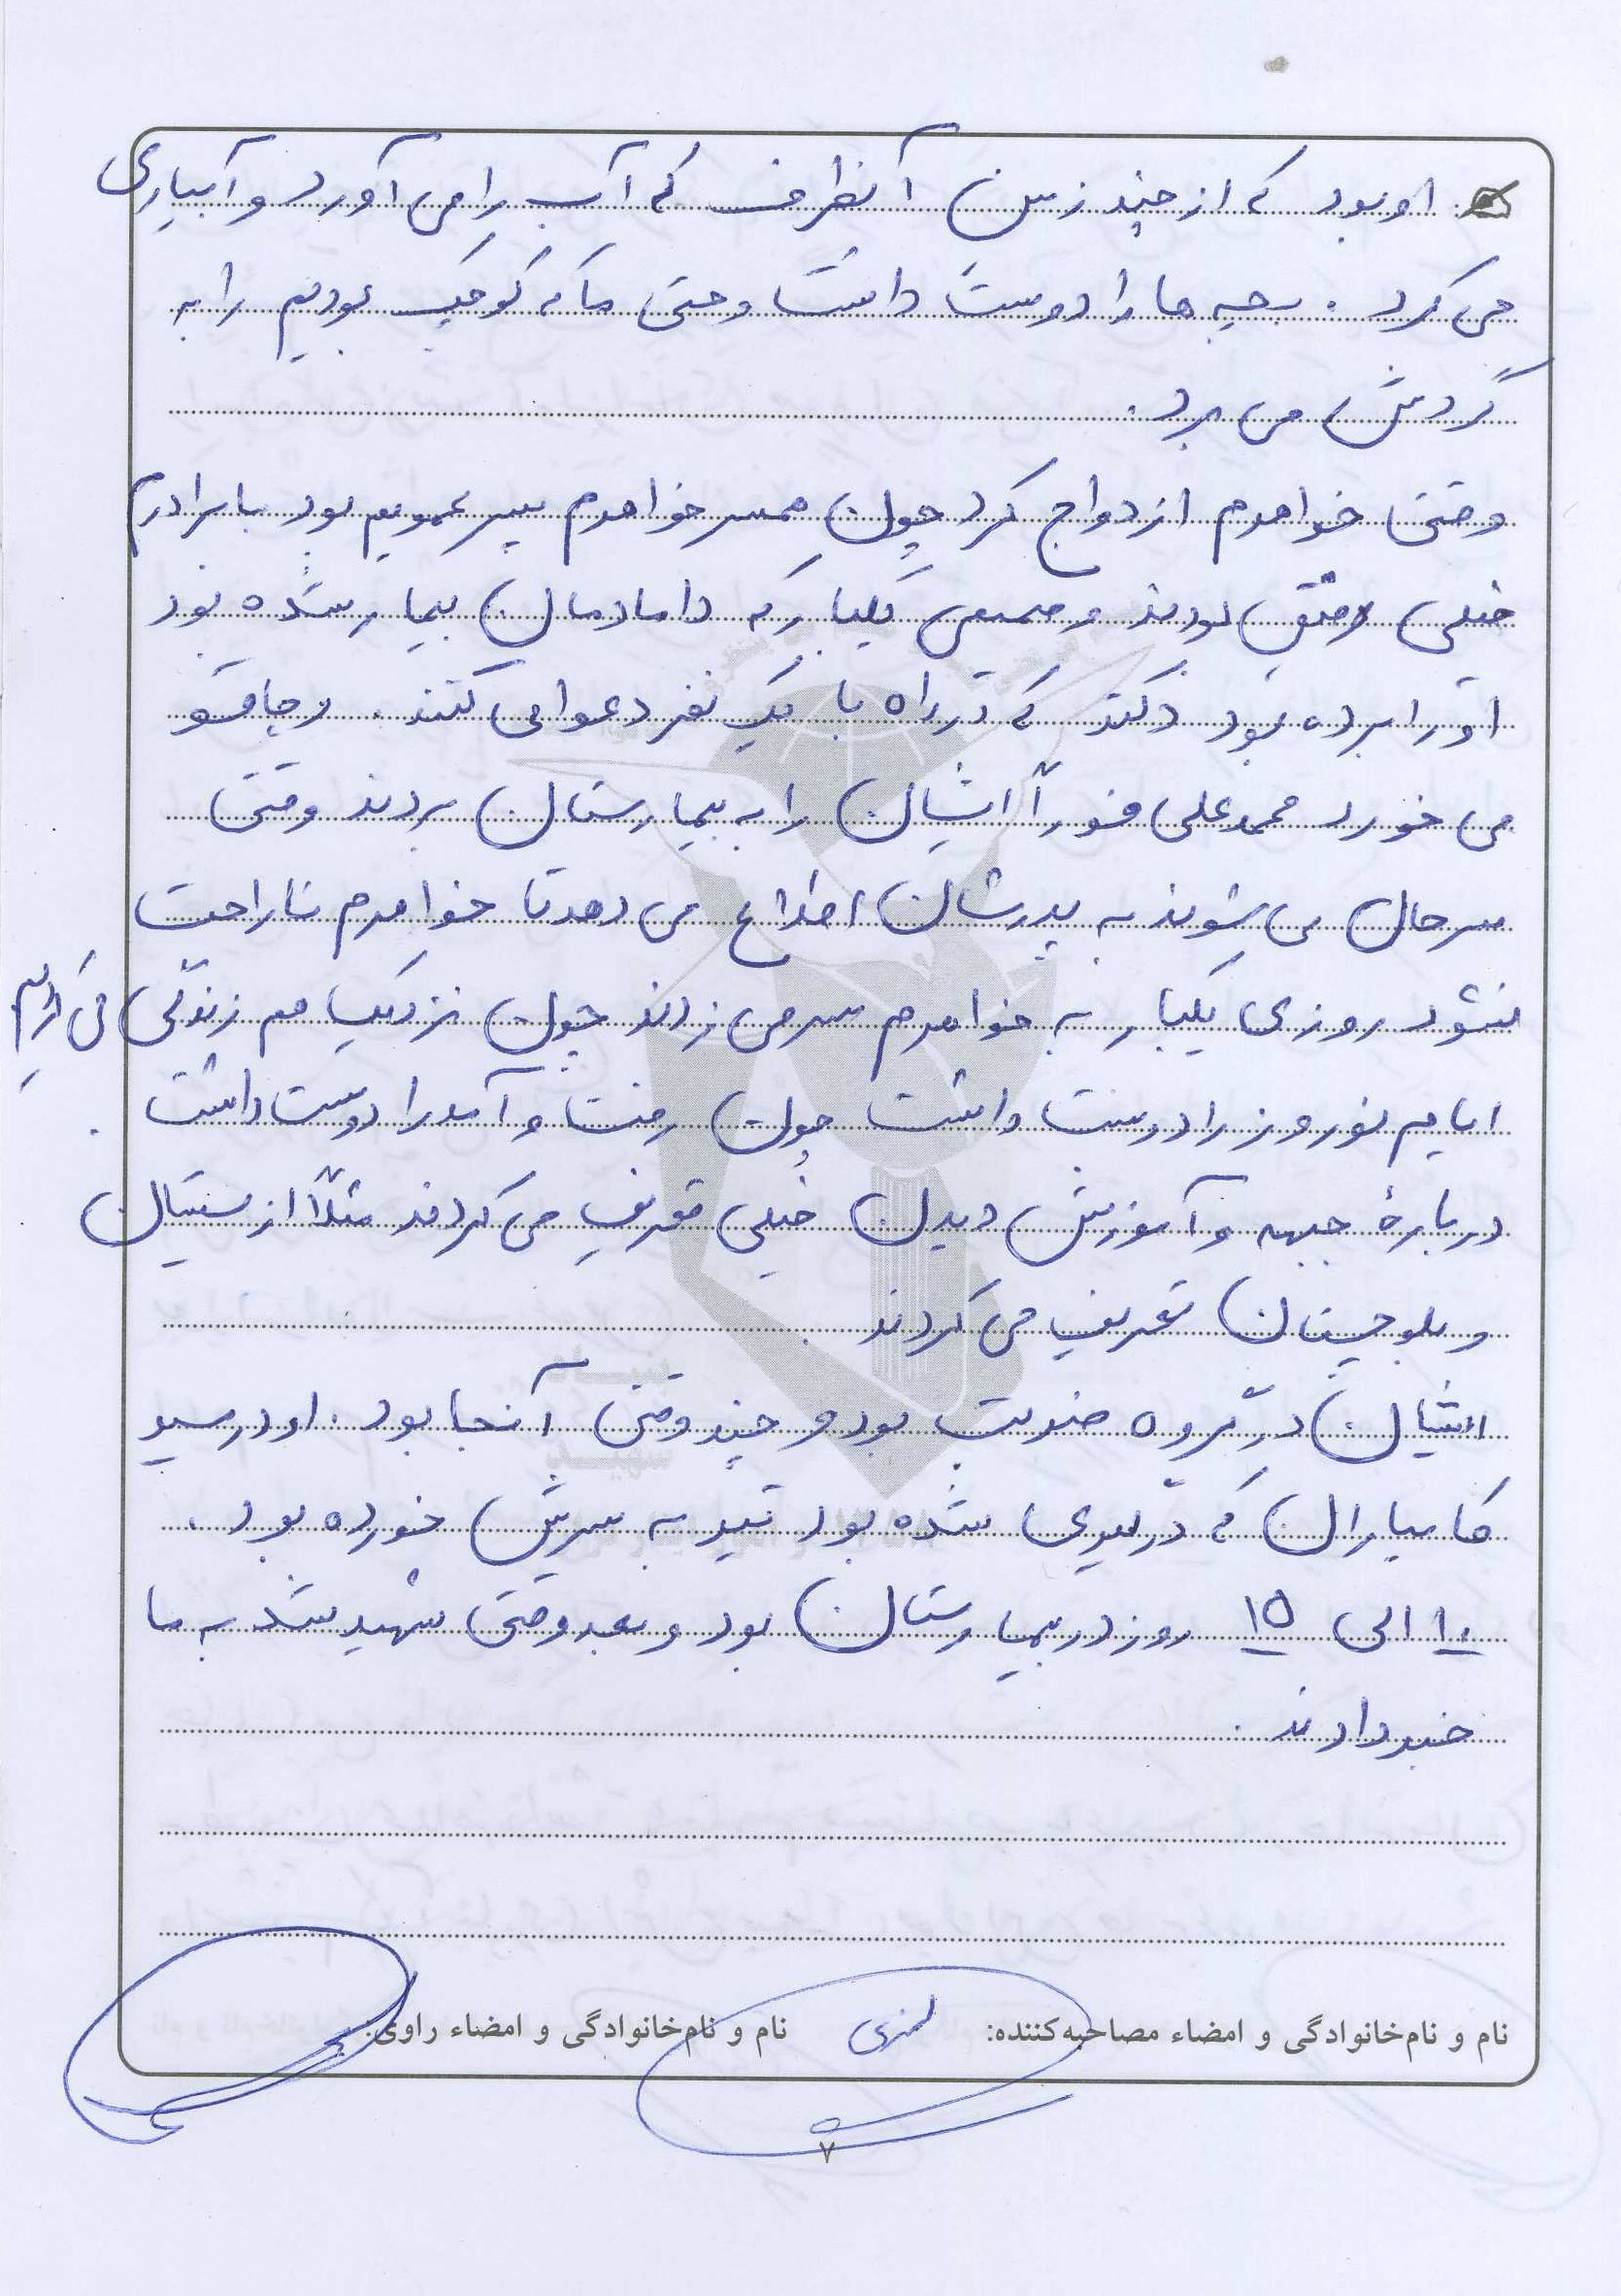 او بود که از چند زمین آنطرف که آب را می آورد و آبیاری
می کرد . بچه ها را دوست داشت وحتی ما که کوچک بودیم را به
گردش می برد .
وقتی خواهرم ازدواج کرد چون همسر خواهرم پسر عمویم بود با برادرم
خیلی رفیق بودند و صمیمی یکبار که دامادمان بیمار شده بود
او را برده بود دکتر که در راه با یک نفر دعوا می کنند . و چاقو
می خورد محمد علی فوراً ایشان را به بیمارستان بردند وقتی
سرحال می شوند به پدرشان اطلاع می دهد تا خواهرم ناراحت
نشود روزی یکبار به خواهرم سر می زدند چون نزدیک هم زندگی می کردیم
ایام نوروز را دوست داشت چون رفت و آمد را دوست داشت .
درباره جبهه و آموزش دیدن خیلی تعریف می کردند مثلاً از سیستان
و بلوچستان تعریف می کردند .
ایشان در گروه ضربت بود و چند وقتی آنجا بود . او در مسیر
کامیاران که درگیری شده بود تیر به سرش خورده بود .
۱۰ الی ۱۵ روز در بیمارستان بود و بعد وقتی شهید شد به ما
خبر دادند .
نام و نام‌خانوادگی و امضاء مصاحبه‌کننده: نام و نام‌خانوادگی و امضاء راوی:
۷